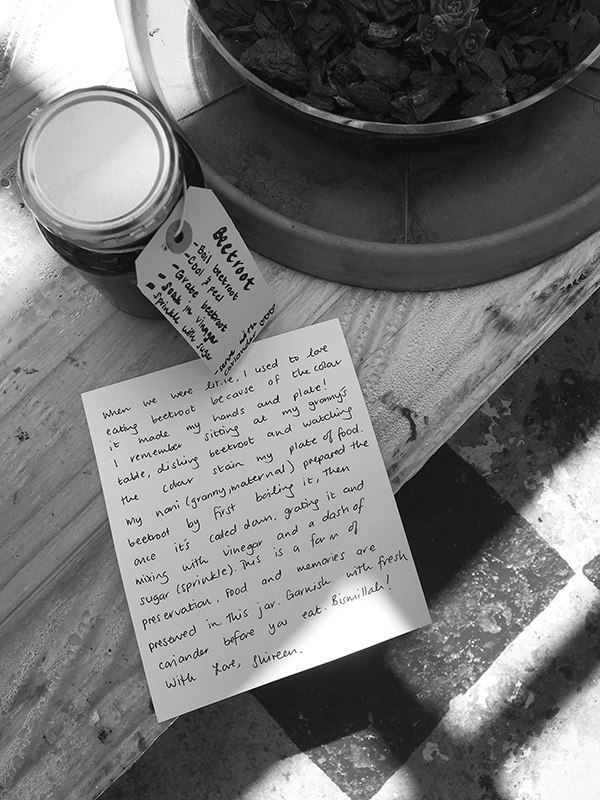 Beetroot
- Boil beetroot
- Cool & peel
- Grate beetroot
- Soak in vinegar
- Sprinkle with sugar
- serve with
coriander
When we were little, I used to love
eating beetroot because of the colour
it made my hands and plate!
I remember sitting at my granny's
table, dishing beetroot and watching
the colour stain my plate of food.
My nani (granny, maternal) prepared the
beetroot by first boiling it, then
once it's cooled down. grating it and
mixing with vinegar and a dash of
sugar (sprinkle). This is a form of
preservation. Food and memories are
preserved in this jar. Garnish with fresh
coriander before you eat. Bismillah!
With Love, Shireen.